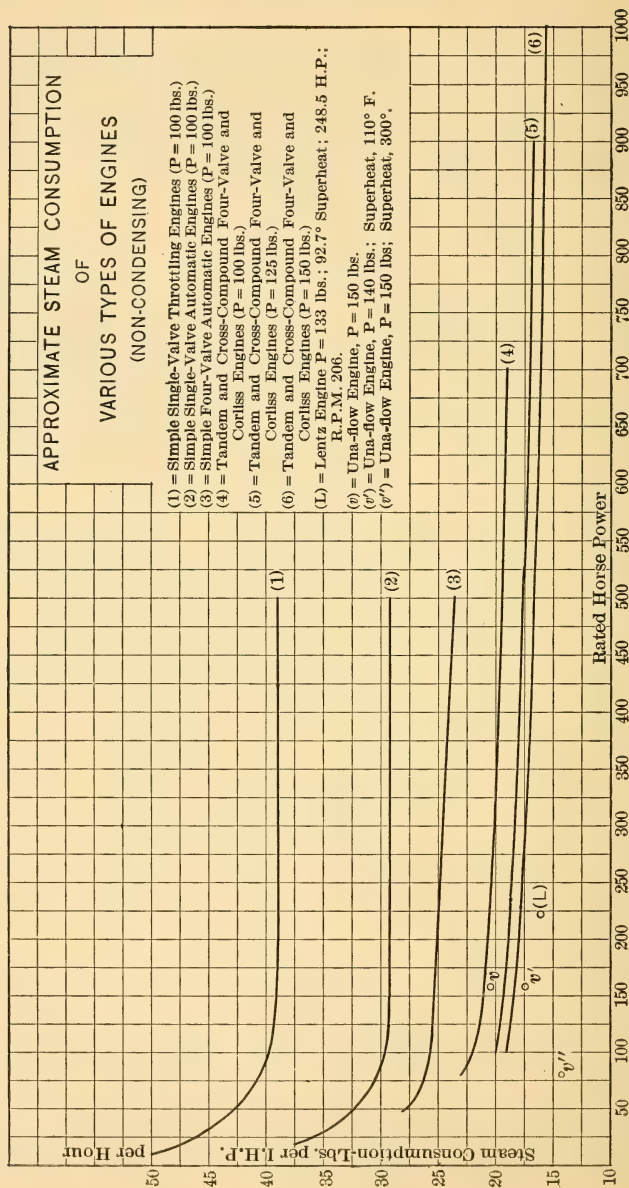 APPROXIMATE STEAM CONSUMPTION
OF
VARIOUS TYPES OF ENGINES
(NON-CONDENSING)
(1) = Simple Single-Valve Throttling Engines (P = 100 lbs.)
(2) = Simple Single-Valve Automatic Engines (P = 100 lbs.)
(3) = Simple Four-Valve Automatic Engines (P = 100 lbs.)
(4) = Tandem and Cross-Compound Four-Valve and
Corliss Engines (P = 100 lbs.)
(5) = Tandem and Cross-Compound Four-Valve and
Corliss Engines (P = 125 lbs.)
(6) = Tandem and Cross-Compound Four-Valve and
Corliss Engines (P = 150 lbs.)
(L) = Lentz Engine P = 133 lbs.; 92.7° Superheat; 248.5 H.P.;
R.P.M. 206.
(v) = Una-flow Engine, P = 150 lbs.
(v') = Una-flow Engine, P = 140 lbs.; Superheat, 110° F.
(v'') = Una-flow Engine, P = 150 lbs; Superheat, 300°.
Steam Consumption-Lbs. per I.H.P.
per Hour
50
45
40
35
30
25
20
15
10
(1)
(2)
(3)
(4)
(5)
(6)
v
v'
v''
(L)
50 100 150 200 250 300 350 400 450 500 550 600 650 700 750 800 850 900 950 1000
Rated Horse Power